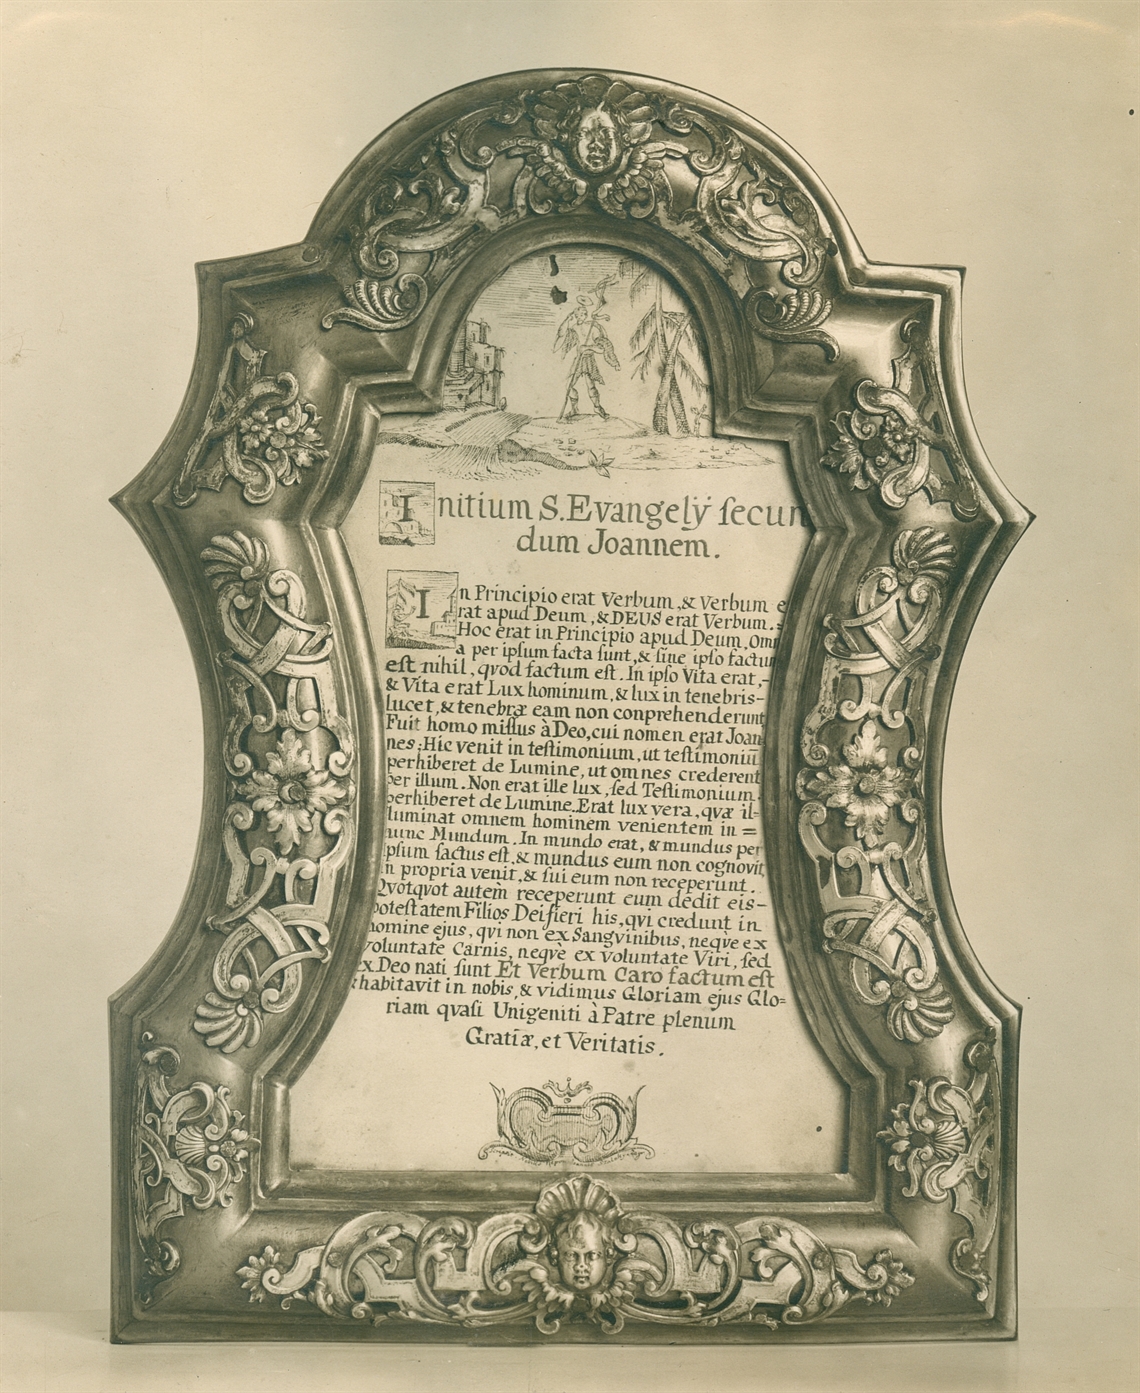 Initium S. Evangelÿ ſecun
dum Joannem.
In Principio erat Verbum, & Verbum e
rat apud Deum, & DEUS erat Verbum.
Hoc erat in Principio apud Deum, Omn
a per ipſum facta ſunt, & ſine ipſo factum
est nihil, qvod factum eſt. In ipſo Vita erat,-
& Vita erat Lux hominum, & lux in tenebris-
lucet, & tenebræ eam non conprehenderunt
Fuit homo miſſus à Deo, cui nomen erat Joan
nes; Hic venit in teſtimonium, ut teſtimoniū
perhiberet de Lumine, ut omnes crederent
per illum. Non erat ille lux, ſed Teſtimonium
perhiberet de Lumine. Erat lux vera, qvæ il=
luminat omnem hominem venientem in =
hunc Mundum. In mundo erat, & mundus per
ipſum factus eſt, & mundus eum non cognovit,
in propria venit, & ſui eum non receperunt.
Qvotqvot autem receperunt eum dedit eis-
poteſtatem Filios Dei fieri his, qvi credunt in
nomine ejus, qvi non ex Sangvinibus, neqve ex
voluntate Carnis, neqve ex voluntate Viri, ſed
ex Deo nati ſunt Et Verbum Caro factum eſt
& habitavit in nobis, & vidimus Gloriam ejus Glo=
riam qvaſi Unigeniti à Patre plenum
Gratiæ, et Veritatis.